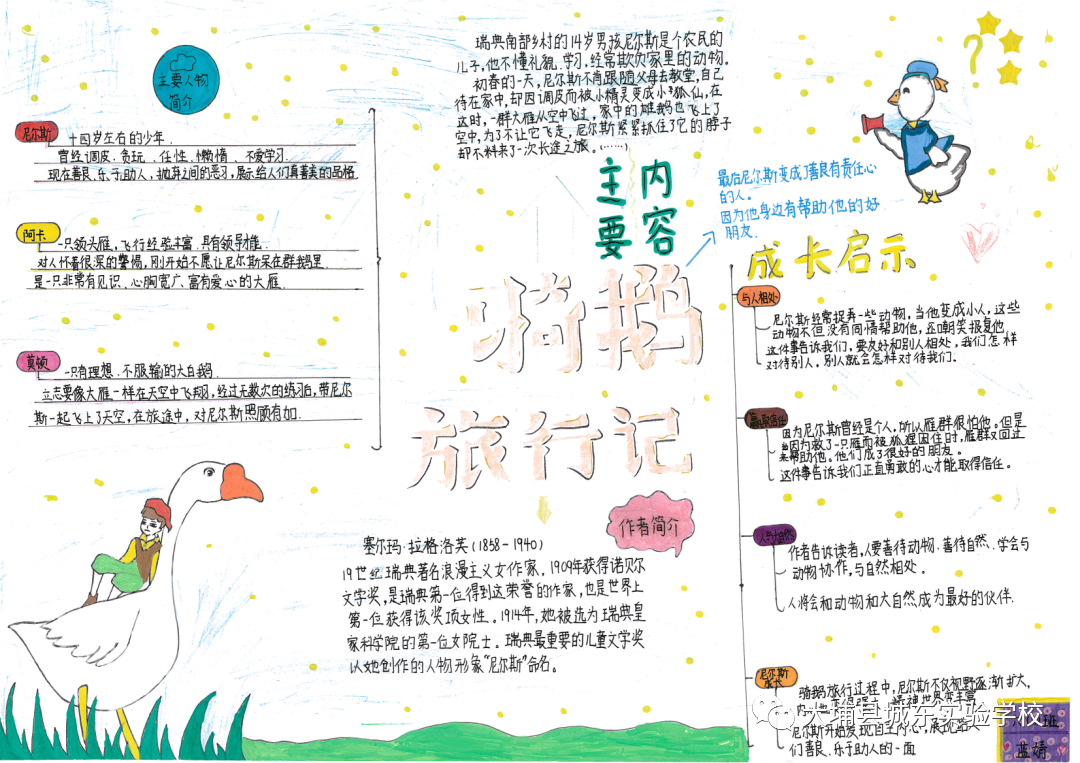 主要人物
简介
尼尔斯
十四岁左右的少年.
曾经调皮、贪玩、任性、懒惰、不爱学习.
现在善良、乐于助人，抛弃之间的恶习，展示给人们真善美的品格
阿卡
一只领头雁，飞行经验丰富、具有领导才能.
对人怀着很深的警惕，刚开始不愿让尼尔斯呆在群鹅里.
是一只非常有见识、心胸宽广、富有爱心的大雁.
莫顿
一只有理想、不服输的大白鹅.
立志要像大雁一样在天空中飞翔，经过无数次的练习后，带尼尔
斯一起飞上了天空，在旅途中，对尼尔斯照顾有加.
瑞典南部乡村的14岁男孩尼尔斯是个农民的
儿子，他不懂礼貌、学习，经常欺负家里的动物。
初春的一天，尼尔斯不肯跟随父母去教堂，自己
待在家中，却因调皮而被小精灵变成小狐仙，在
这时，一群大雁从空中飞过，家中的雄鹅也飞上了
空中，为了不让它飞走，尼尔斯紧紧抓住了它的脖子
却不料来了一次长途之旅。(……)
主要
内容
最后尼尔斯变成了善良有责任心
的人。
因为他身边有帮助他的好
朋友.
骑鹅
旅行记
作者简介
塞尔玛·拉格洛芙(1858-1940)
19世纪瑞典著名浪漫主义女作家，1909年获得诺贝尔
文学奖，是瑞典第一位得到这荣誉的作家，也是世界上
第一位获得该奖项女性。1914年，她被选为瑞典皇
家科学院的第一位女院士。瑞典最重要的儿童文学奖
以她创作的人物形象“尼尔斯”命名。
成长启示
与人相处
尼尔斯经常捉弄一些动物，当他变成小人，这些
动物不但没有同情帮助他，还嘲笑报复他
这件事告诉我们，要友好和别人相处，我们怎样
对待别人，别人就会怎样对待我们。
赢取信任
因为尼尔斯曾经是个人，所以雁群很怕他，但是
当因为救了一只雁而被狐狸困住时，雁群又回过
来帮助他。他们成了很好的朋友。
这件事告诉我们正直勇敢的心才能取得信任。
人与自然
作者告诉读者，人要善待动物、善待自然、学会与
动物协作，与自然相处.
人将会和动物和大自然成为最好的伙伴.
尼尔斯
成长
骑鹅旅行过程中，尼尔斯不仅视野逐渐扩大，
尼尔斯开始发现自己内心，展现给人
们善良、乐于助人的一面
大埔县城东实验学校
班
蓝婧